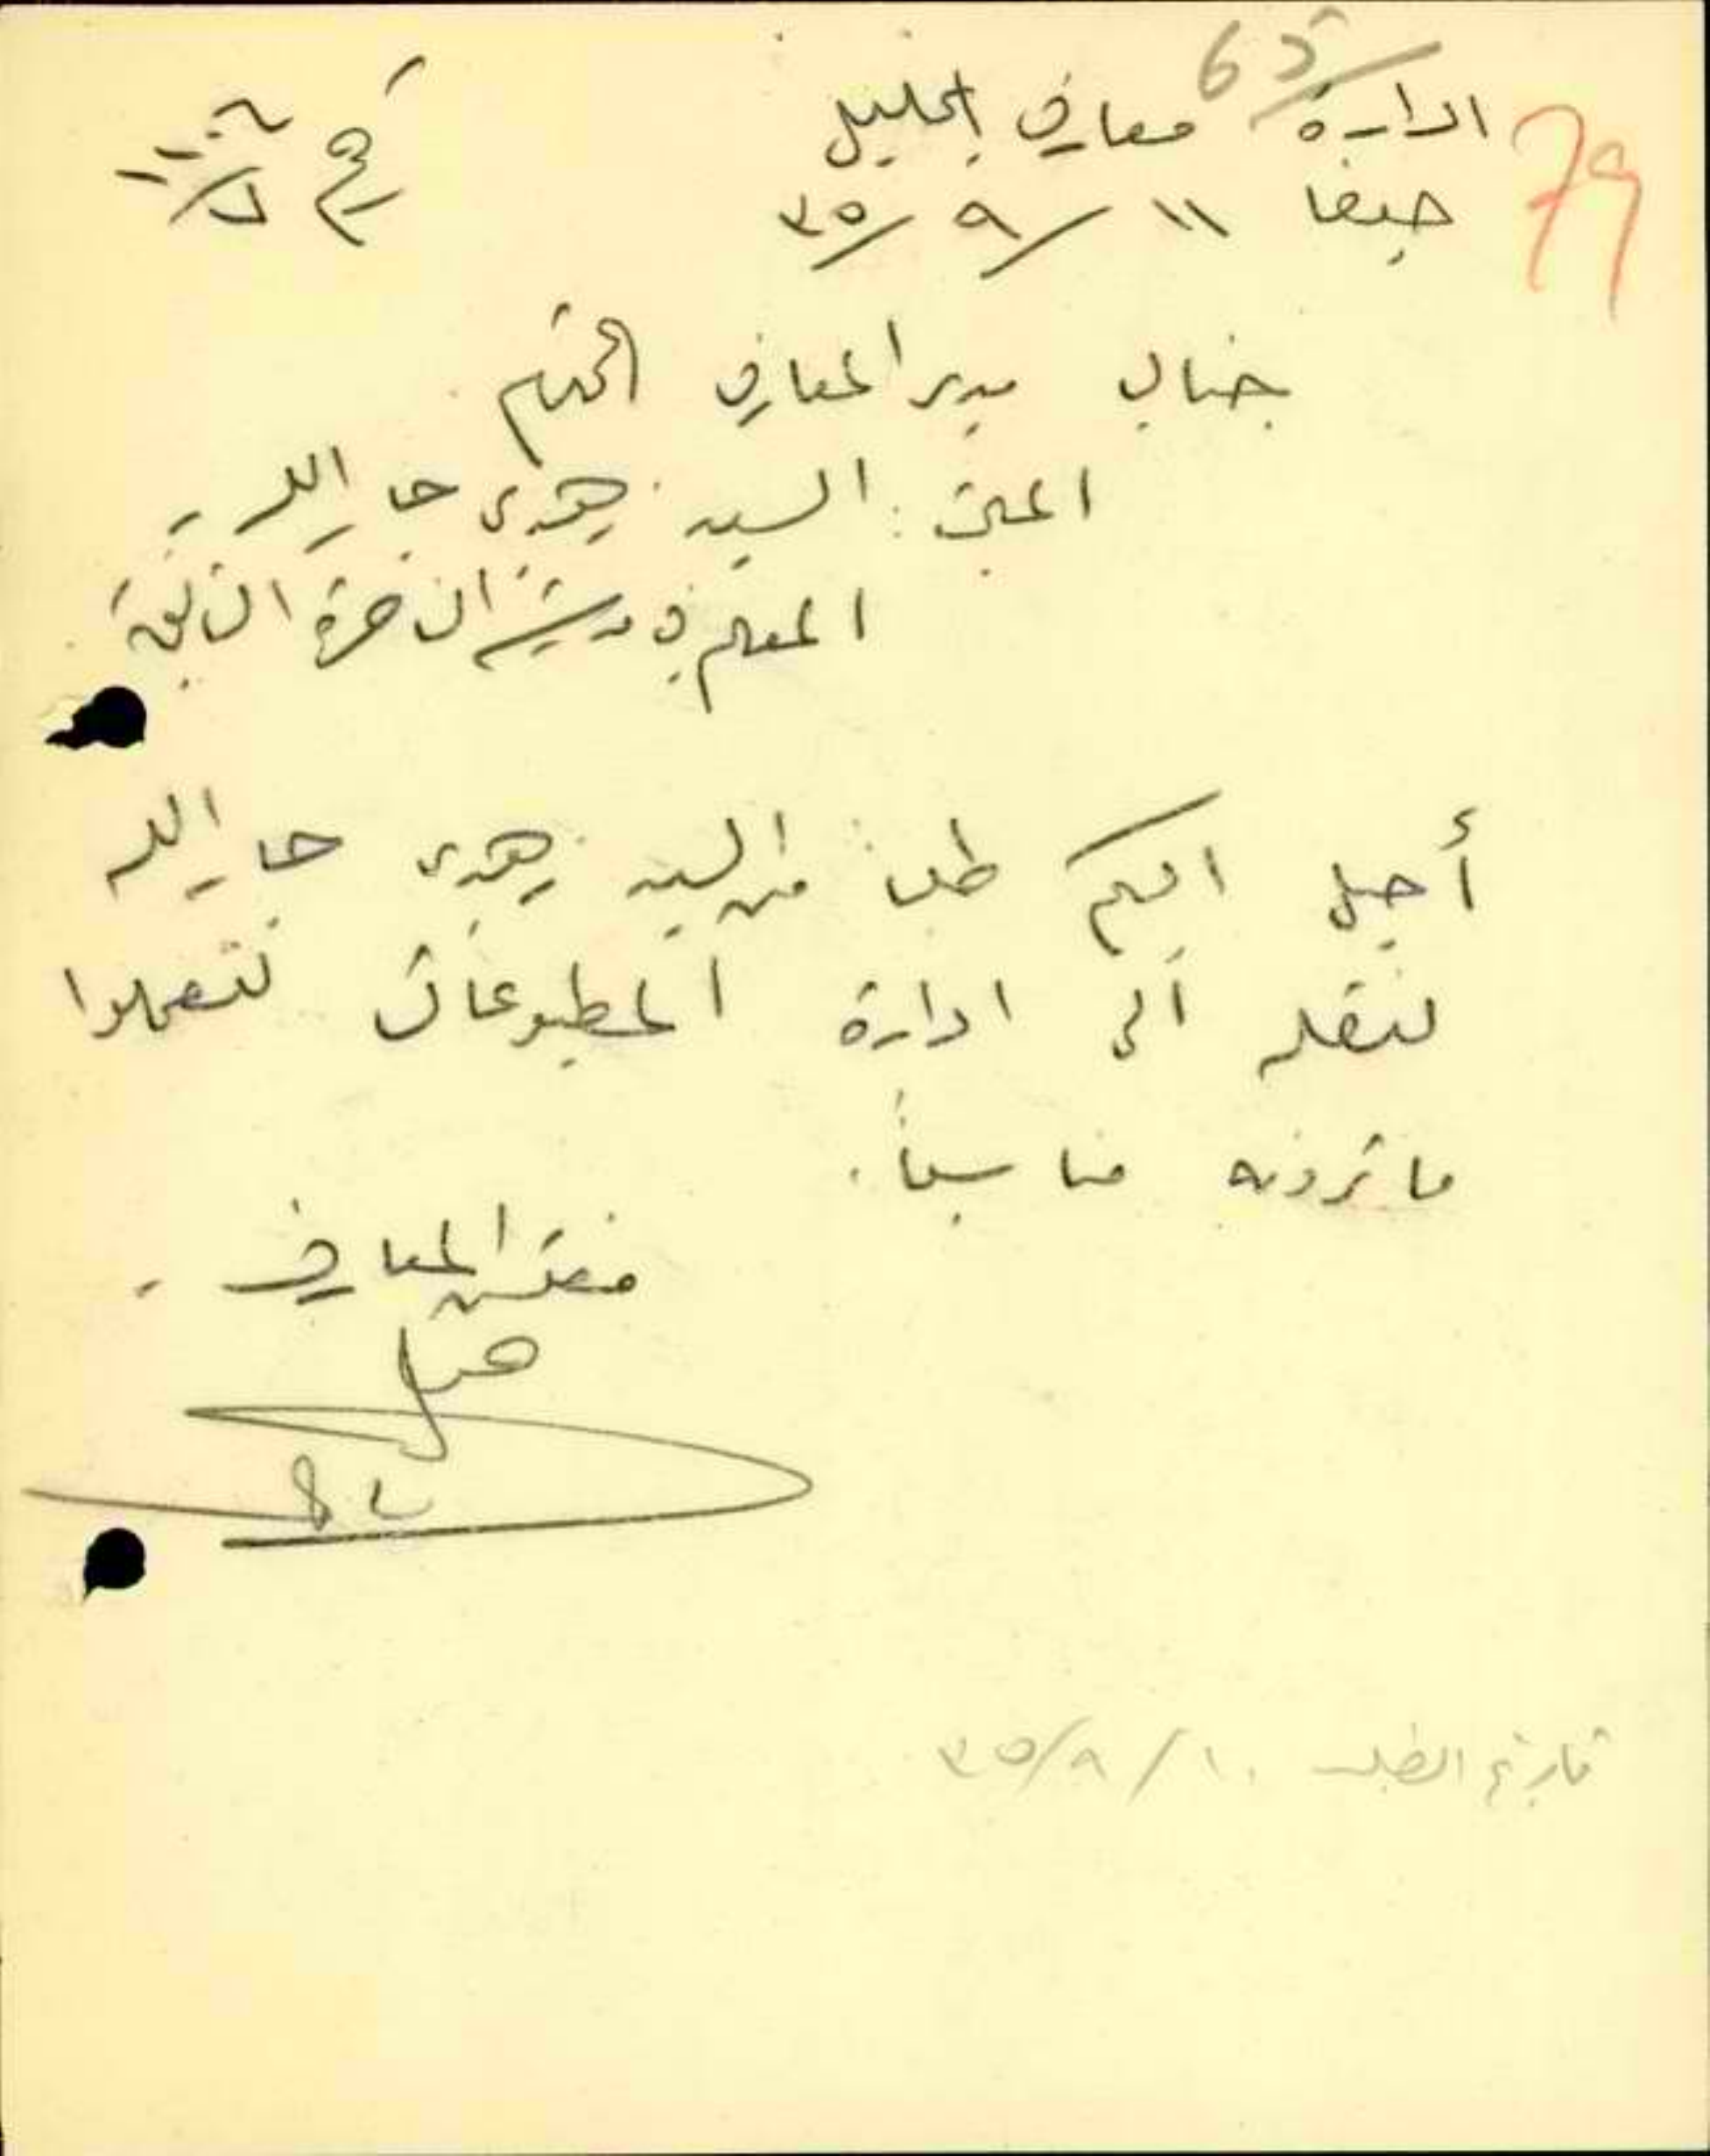 65
79
ادارة معارف الجليل
حيفا ١١/٩/٣٥
جناب مدير المعارف المحترم
المبحث: السيد جار الله
المعلم في مدرسة الناصرة الثانوية
أحيل اليكم طلب من السيد جار الله
لنقله الى ادارة المطبوعات لتعملوا
ما ترونه مناسباً.
مفتش المعارف
تاريخ الطلب ١٠/٩/٣٥